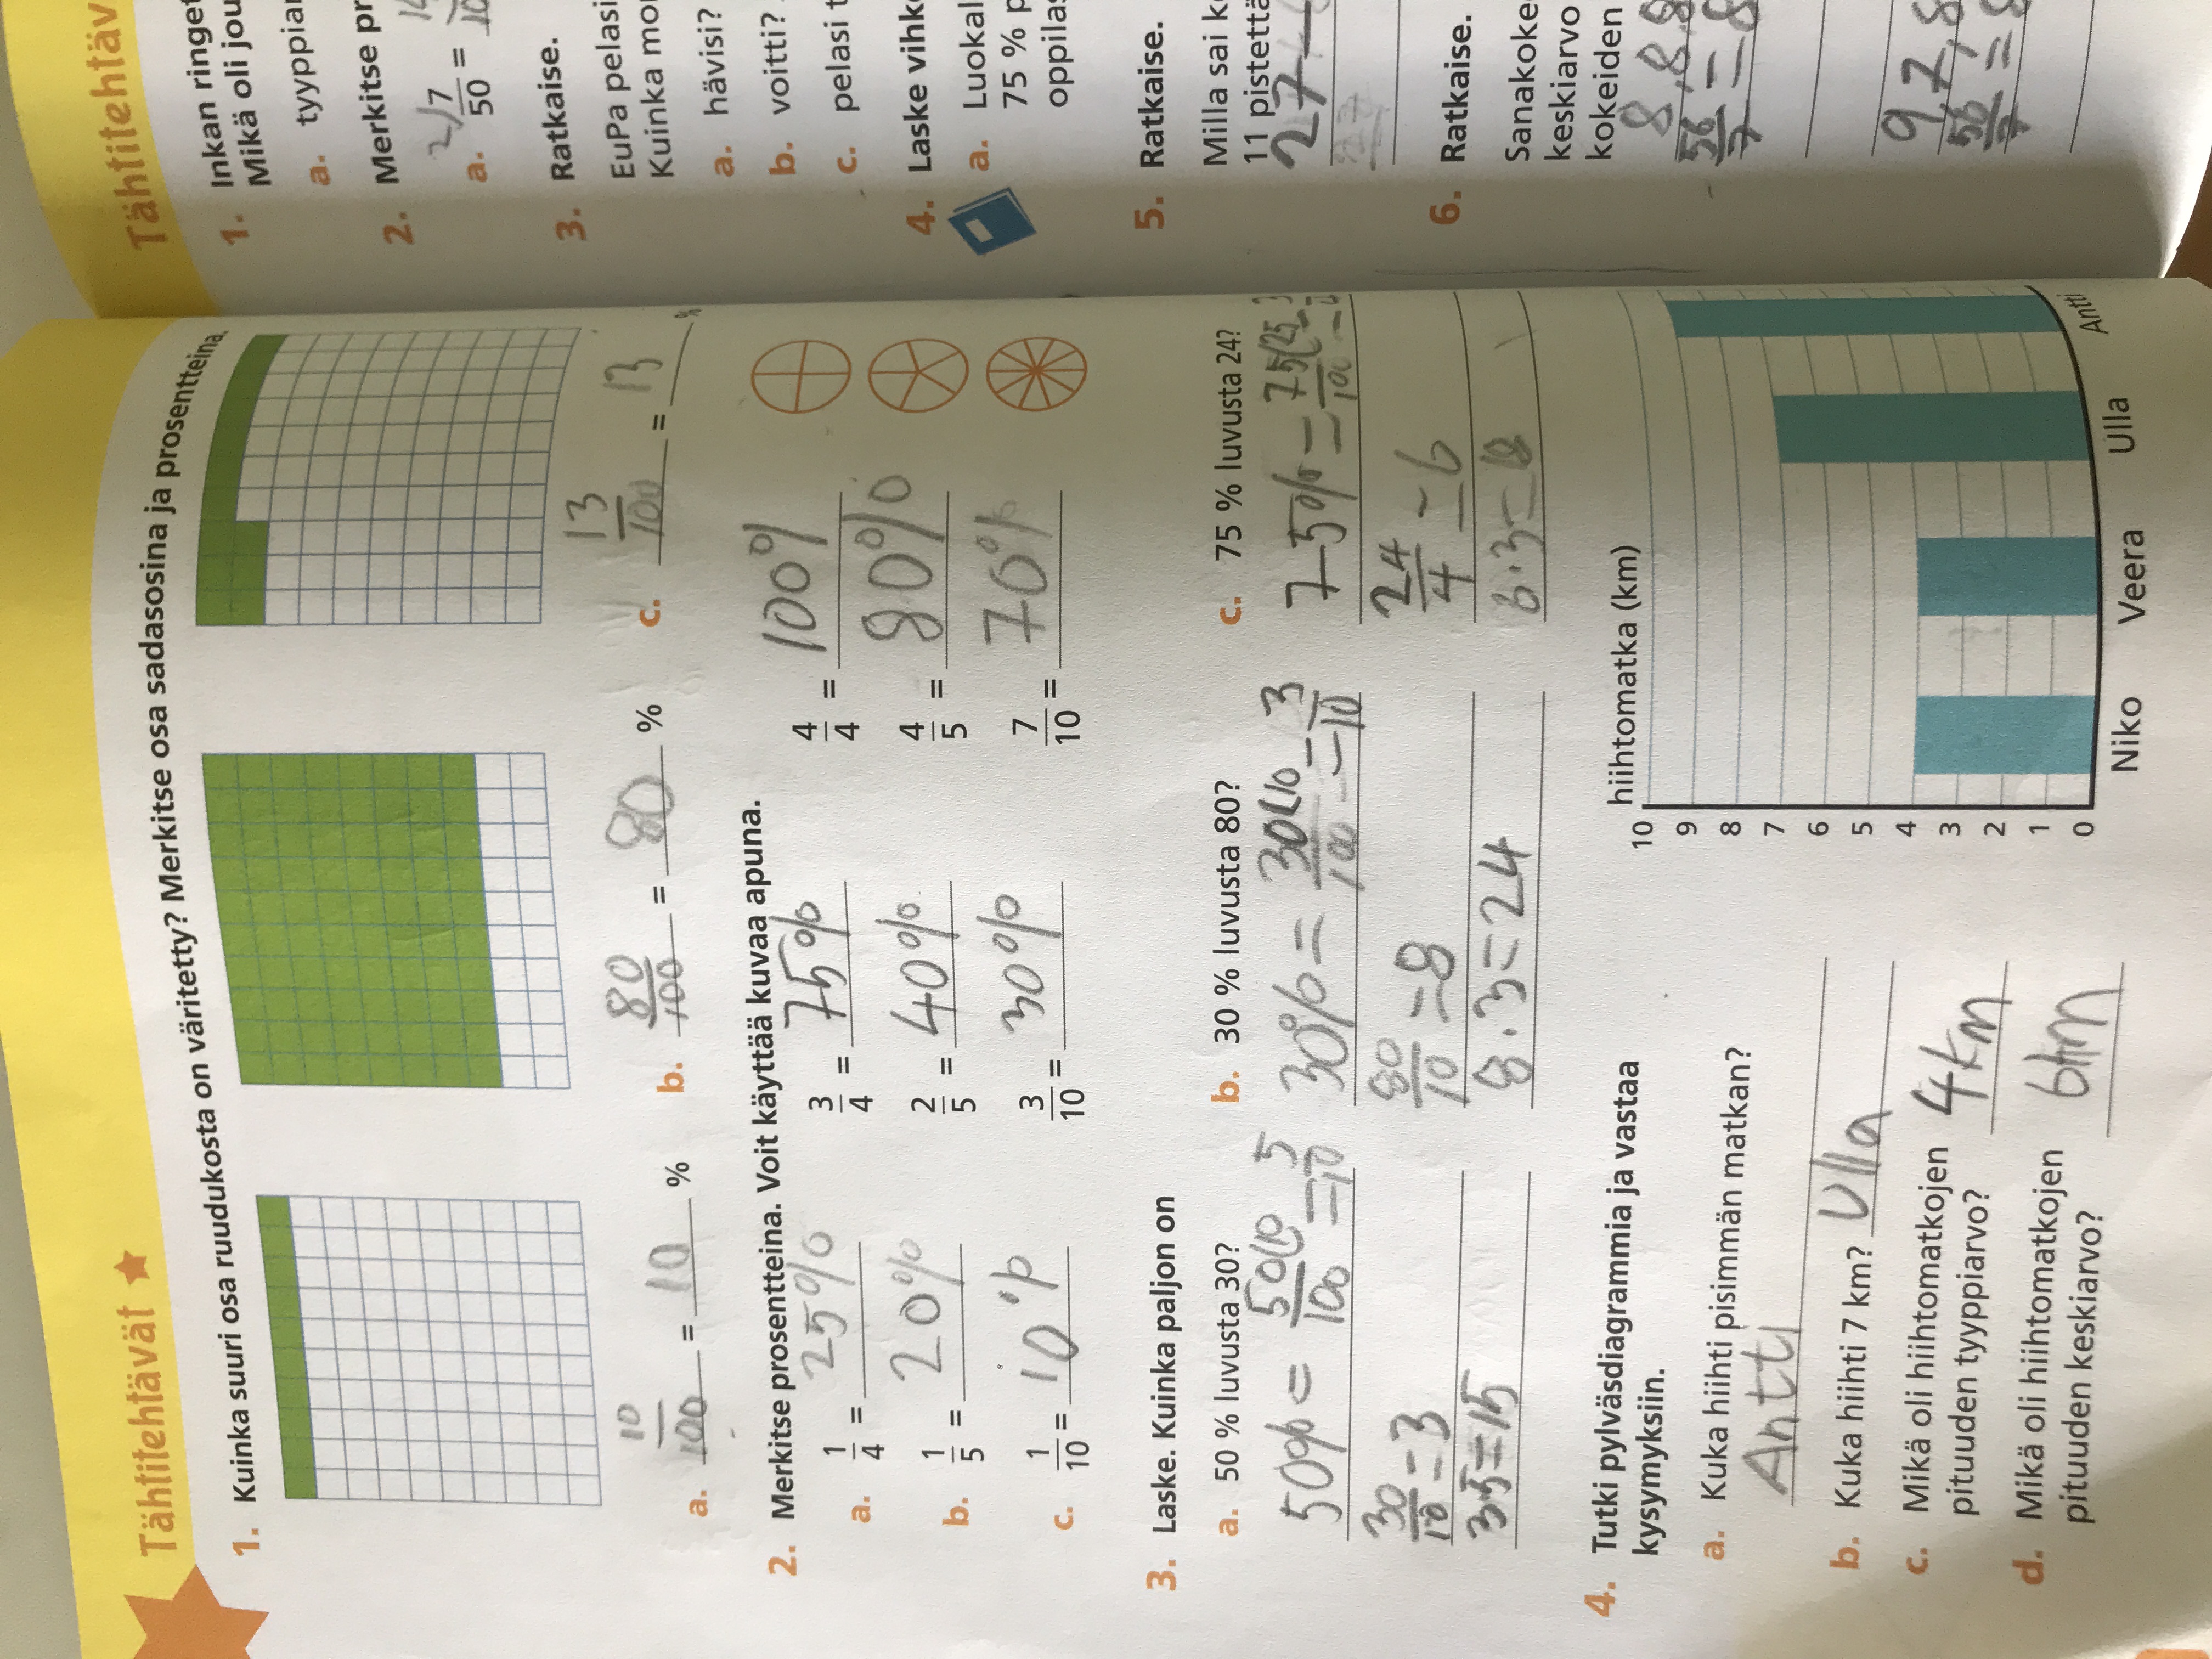 Tähtitehtävät
1. Kuinka suuri osa ruudukosta on väritetty? Merkitse osa sadasosina ja prosentteina.
a. 10/100 = 10 %
b. 80/100 = 80 %
c. 13/100 = 13 %
2. Merkitse prosentteina. Voit käyttää kuvaa apuna.
a. 1/4 = 25% 3/4 = 75% 4/4 = 100%
b. 1/5 = 20% 2/5 = 40% 4/5 = 80%
c. 1/10 = 10% 3/10 = 30% 7/10 = 70%
3. Laske. Kuinka paljon on
a. 50 % luvusta 30?
50% = 50(10/100 = 5/10
30/10 = 3
3·5=15
b. 30 % luvusta 80?
30% = 30(10/100 = 3/10
80/10 = 8
8·3=24
c. 75 % luvusta 24?
75% = 75(25/100
24/4 = 6
6·3=18
4. Tutki pylväsdiagrammia ja vastaa
kysymyksiin.
a. Kuka hiihti pisimmän matkan?
Antti
b. Kuka hiihti 7 km? Ulla
c. Mikä oli hiihtomatkojen 4km
pituuden tyyppiarvo?
d. Mikä oli hiihtomatkojen 6km
pituuden keskiarvo?
hiihtomatka (km)
10
9
8
7
6
5
4
3
2
1
0
Niko Veera Ulla Antti
Tähtitehtäv
1. Inkan ringet
Mikä oli jou
a. tyyppiar
2. Merkitse pr
a. 2)7/50 =
3. Ratkaise.
EuPa pelasi
Kuinka mo
a. hävisi?
b. voitti?
c. pelasi t
4. Laske vihk
a. Luokal
75 % p
oppilas
5. Ratkaise.
Milla sai k
11 pistettä
27
6. Ratkaise.
Sanakoke
keskiarvo
kokeiden
8,8,8
56/7 = 8
9,7,8
56/7 = 8